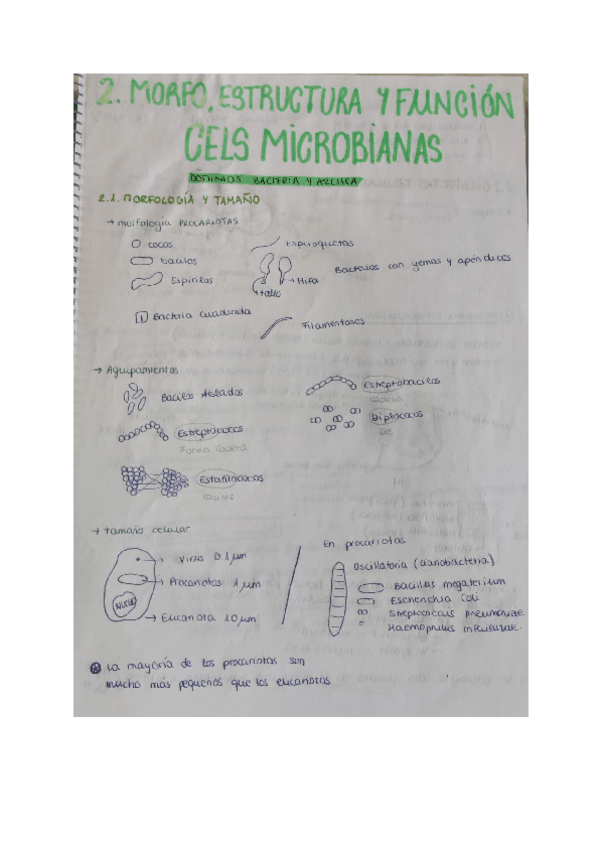 2. MORFO, ESTRUCTURA Y FUNCIÓN
CELS MICROBIANAS
DOMINIOS BACTERIA Y ARCHEA
2.1. MORFOLOGÍA Y TAMAÑO
→ morfología PROCARIOTAS
cocos
bacilos
Espirilos
Espiroquetas
→ Hifa
→ tallo
Bacterias con yemas y apéndices
Bacteria cuadrada
Filamentosas
→ Agrupamientos
Bacilos Aislados
Estreptobacilos
cadena
Estreptococos
Forma cadena
Diplococos
dos
Estafilococos
racimo
→ tamaño celular
Virus 0.1 μm
Procariotas 1 μm
Núcleo
→ Eucariota 10 μm
En procariotas
Oscillatoria (cianobacteria)
Bacillus megaterium
Escherichia Coli
Streptococcus pneumoniae
Haemophilus influenzae.
La mayoría de los procariotas son
mucho más pequeños que los eucariotas